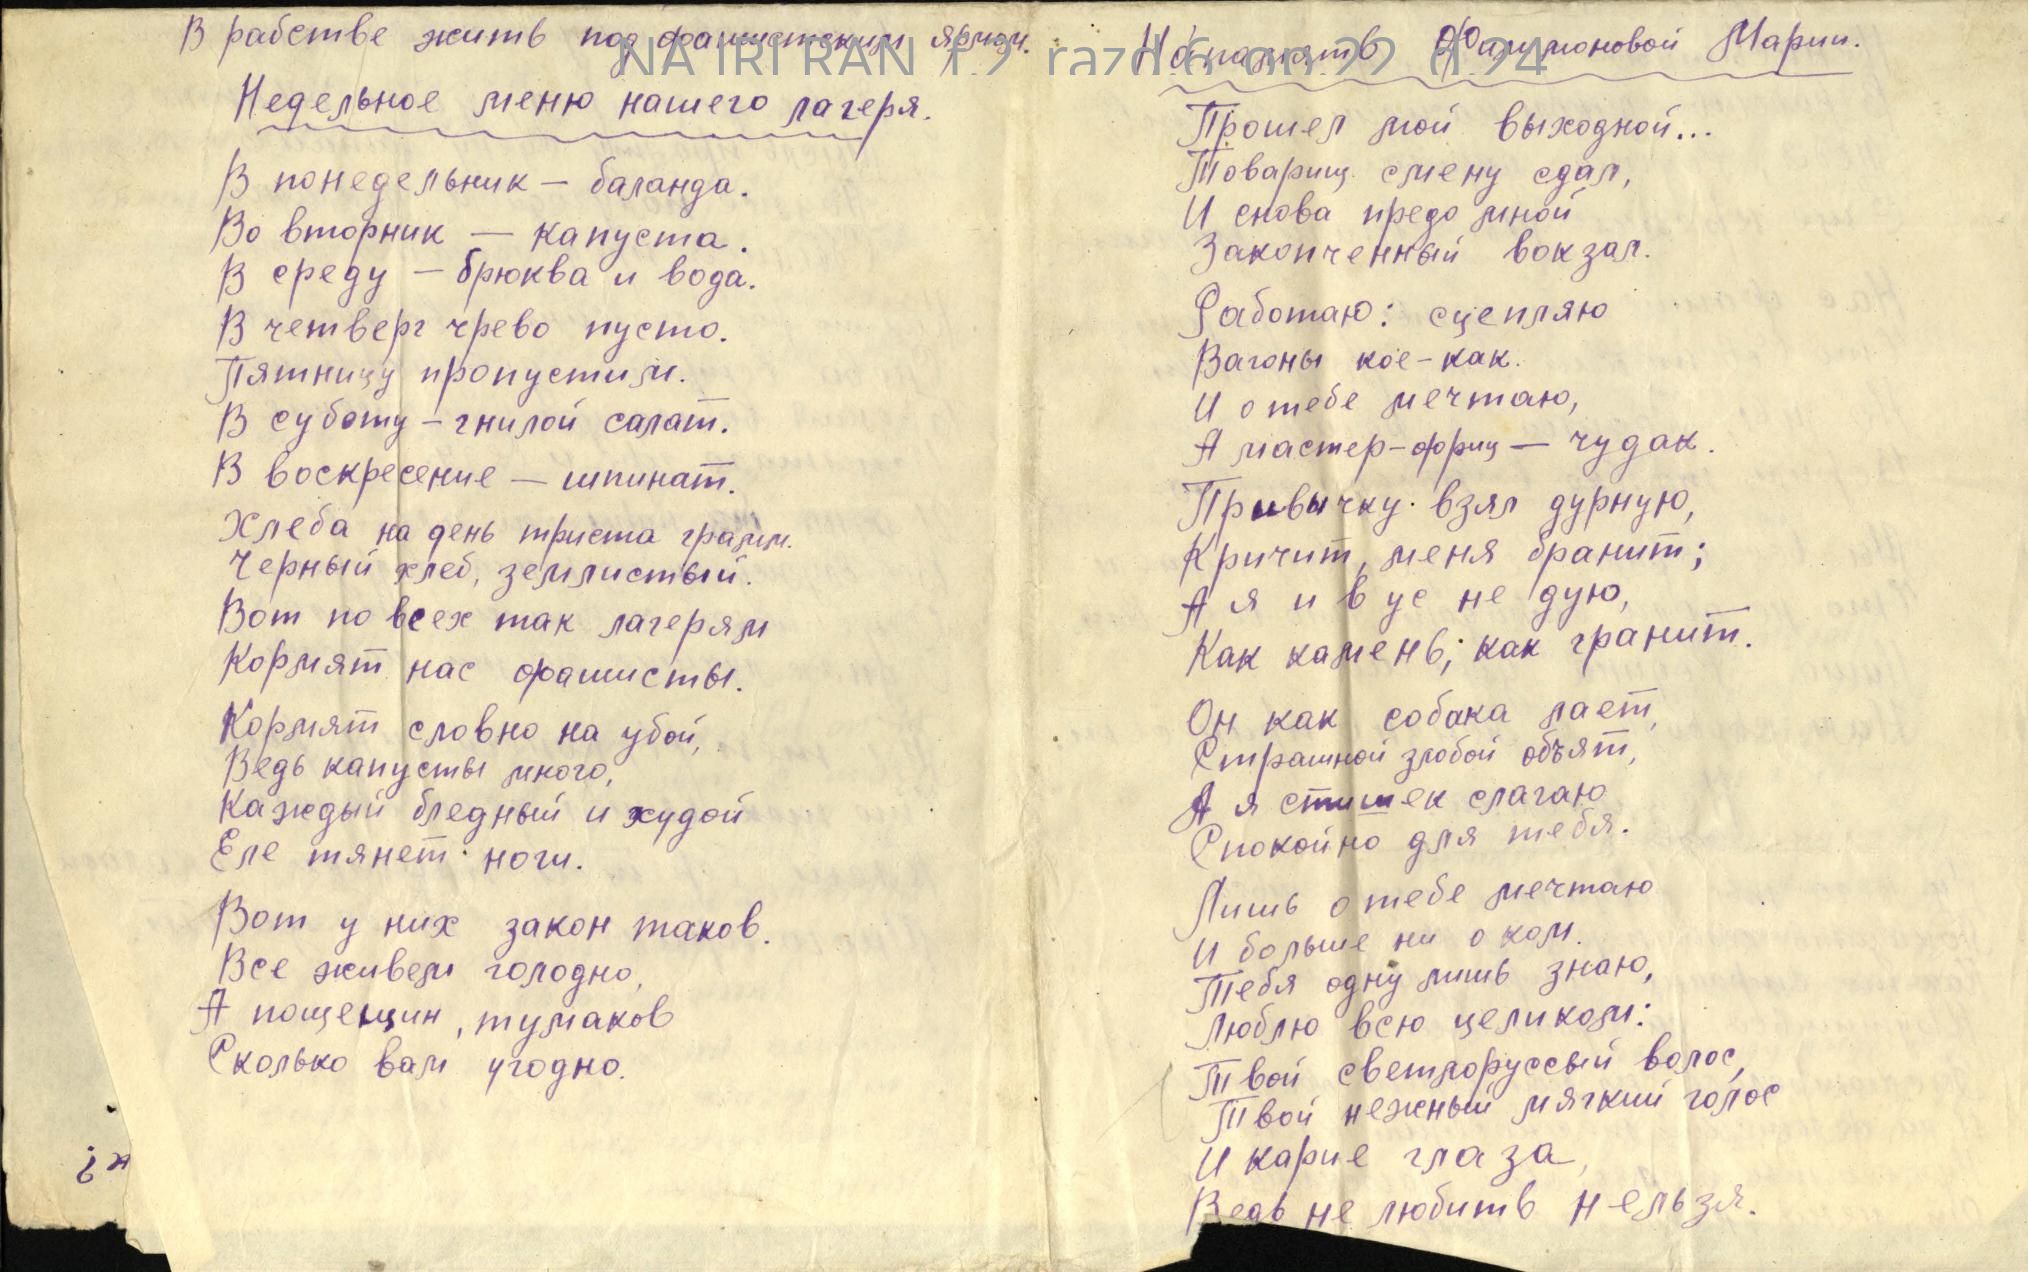 В рабстве жить под фашистским ярмом.
Недельное меню нашего лагеря.
В понедельник — баланда.
Во вторник — капуста.
В среду — брюква и вода.
В четверг чрево пусто.
Пятницу пропустим.
В суботу — гнилой салат.
В воскресение — шпинат.
Хлеба на день триста грамм.
Черный хлеб, землистый.
Вот по всех так лагерям
Кормят нас фашисты.
Кормят словно на убой,
Ведь капусты много,
Каждый бледный и худой
Еле тянет ноги.
Вот у них закон таков.
Все живем голодно,
А пощещин, тумаков
Сколько вам угодно.
На память Филимоновой Марии.
NA IRI RAN f.2 razd.6 op.22 d.24
Прошел мой выходной...
Товарищ смену сдал,
И снова предо мной
Закопченный вокзал.
Работаю: сцепляю
Вагоны кое-как.
И о тебе мечтаю,
А мастер-фриц — чудак.
Привычку взял дурную,
Кричит, меня бранит;
А я и в ус не дую,
Как камень, как гранит.
Он как собака лает,
Страшной злобой объят,
А я стишек слагаю
Спокойно для тебя.
Лишь о тебе мечтаю
И больше ни о ком.
Тебя одну лишь знаю,
Люблю всю целиком:
Твой светлоруссый волос,
Твой нежный мягкий голос
И карие глаза,
Ведь не любить нельзя.